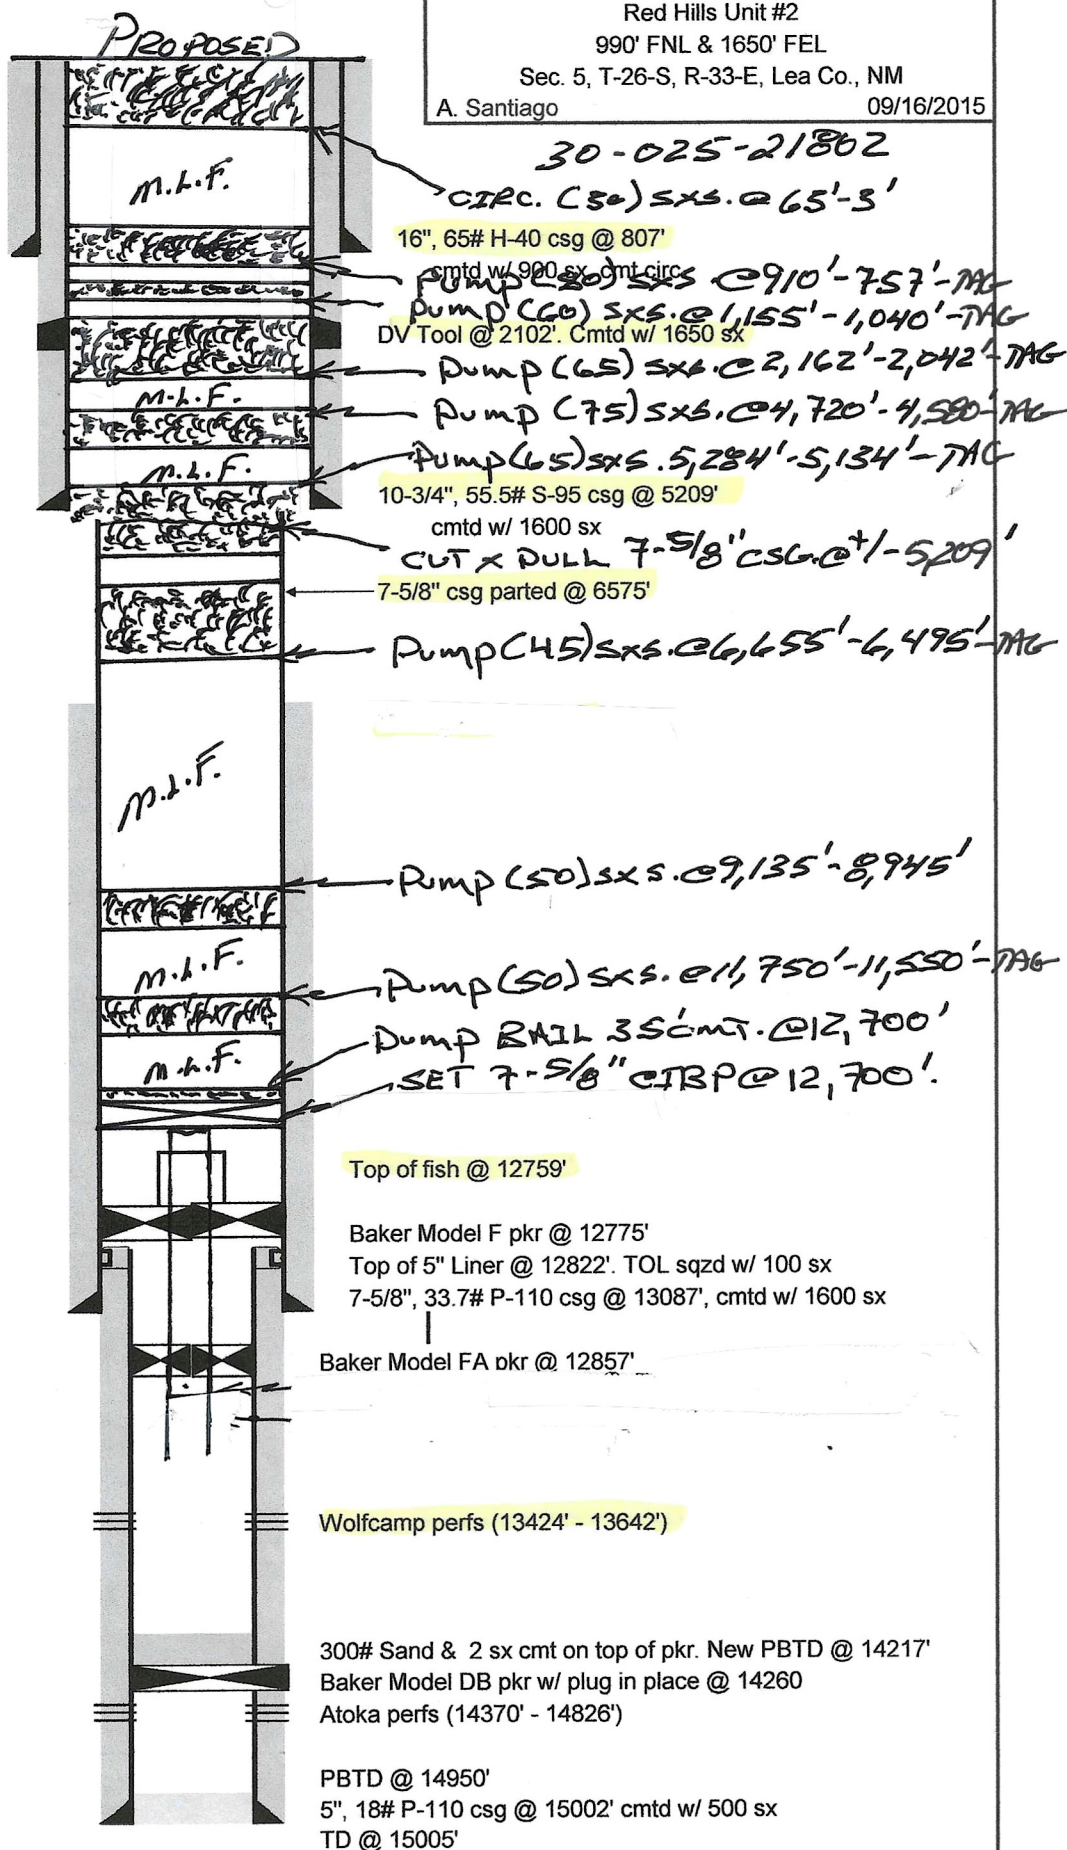 Red Hills Unit #2
990' FNL & 1650' FEL
Sec. 5, T-26-S, R-33-E, Lea Co., NM
A. Santiago 09/16/2015
PROPOSED
30-025-21802
M.L.F.
CIRC. (30) SXS. @ 65'-3'
16", 65# H-40 csg @ 807'
cmtd w/ 900 sx, cmt circ
Pump (80) SXS @ 910'-757'-TAG
Pump (60) SXS. @ 1,155'-1,040'-TAG
DV Tool @ 2102'. Cmtd w/ 1650 sx
Pump (65) SXS. @ 2,162'-2,042'-TAG
M.L.F.
Pump (75) SXS. @ 4,720'-4,580'-TAG
M.L.F.
Pump (65) SXS. 5,284'-5,134'-TAG
10-3/4", 55.5# S-95 csg @ 5209'
cmtd w/ 1600 sx
CUT X PULL 7-5/8" CSG. @ +/- 5,209'
7-5/8" csg parted @ 6575'
Pump (45) SXS. @ 6,655'-6,495'-TAG
M.L.F.
Pump (50) SXS. @ 9,135'-8,945'
M.L.F.
Pump (50) SXS. @ 11,750'-11,550'-TAG
Dump BAIL 35' CMT. @ 12,700'
M.L.F.
SET 7-5/8" CIBP @ 12,700'.
Top of fish @ 12759'
Baker Model F pkr @ 12775'
Top of 5" Liner @ 12822'. TOL sqzd w/ 100 sx
7-5/8", 33.7# P-110 csg @ 13087', cmtd w/ 1600 sx
Baker Model FA pkr @ 12857'
Wolfcamp perfs (13424' - 13642')
300# Sand & 2 sx cmt on top of pkr. New PBTD @ 14217'
Baker Model DB pkr w/ plug in place @ 14260
Atoka perfs (14370' - 14826')
PBTD @ 14950'
5", 18# P-110 csg @ 15002' cmtd w/ 500 sx
TD @ 15005'